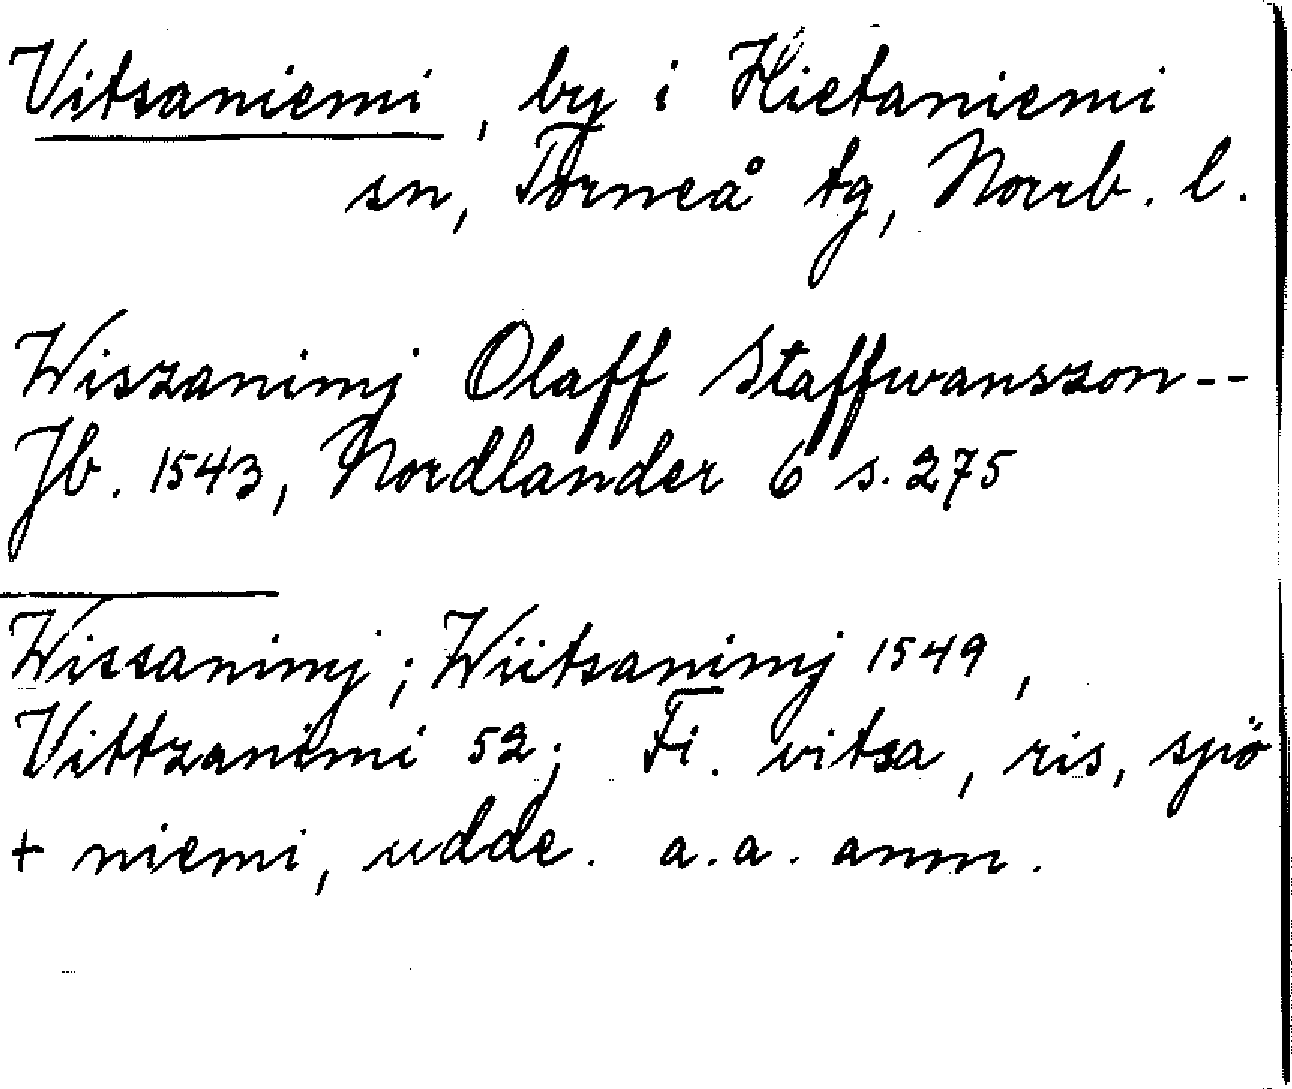 Vitsaniemi, by i Hietaniemi
sn, Torneå tg, Norrb. l.
Wiszanimj Olaff Staffwanszon--
Jb. 1543, Nordlander 6 s. 275
Wissanimj; Wiitsanimj 1549,
Vittzanimi 52; Fi. vitsa, ris, spö
+ niemi, udde. a.a. anm.